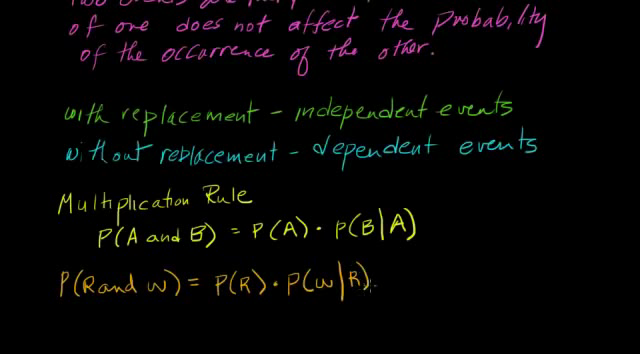 of one does not affect the probability
of the occurrence of the other.
with replacement - independent events
without reblacement - dependent events
Multiplication Rule
P(A and B) = P(A) · P(B|A)
P(R and W) = P(R) · P(W|R)